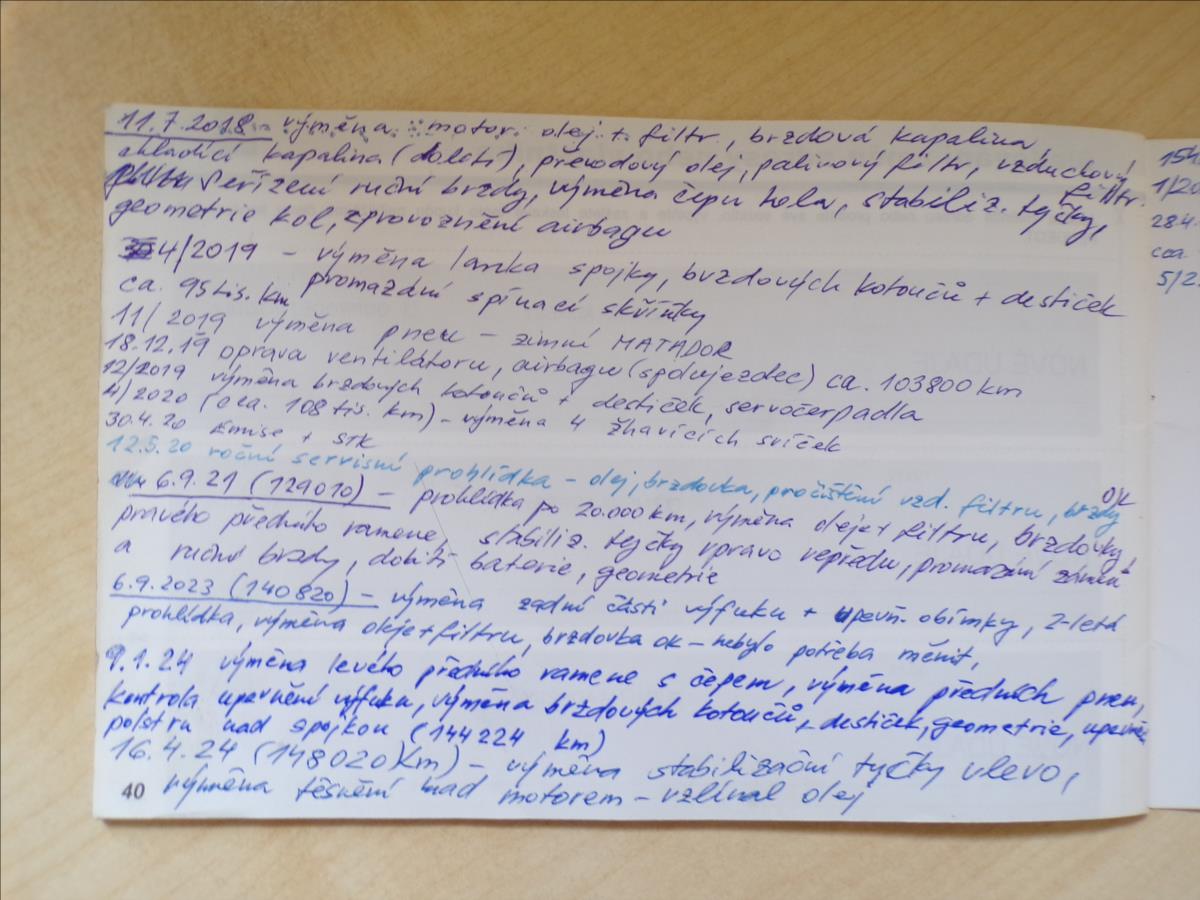 11.7.2018 - výměna motor. olej + filtr, brzdová kapalina,
chladící kapalina (doletí), převodový olej, palivový filtr, vzduchový filtr.
seřízení ruční brzdy, výměna čepu kola, stabiliz. tyčky,
geometrie kol, zprovoznění airbagu
4/2019 - výměna lanka spojky, brzdových kotoučů + destiček
ca. 95 tis. km promazání spínací skříňky
11/2019 výměna pneu - zimní MATADOR
18.12.19 oprava ventilátoru, airbagu (spolujezdec) ca. 103800 km
12/2019 výměna brzdových kotoučů + destiček, servočerpadla
4/2020 (cca. 108 tis. km) - výměna 4 žhavících svíček
30.4.20 Emise + STK
12.5.20 roční servisní prohlídka - olej, brzdovka, pročištění vzd. filtru, brzdy OK
6.9.21 (129010) - prohlídka po 20.000 km, výměna oleje + filtru, brzdovky,
pravého předního ramene, stabiliz. tyčky vpravo vepředu, promazání zámků
a ruční brzdy, dobití baterie, geometrie
6.9.2023 (140820) - výměna zadní části výfuku + upevň. obímky, 2-letá
prohlídka, výměna oleje + filtru, brzdovka ok - nebylo potřeba měnit,
9.1.24 výměna levého předního ramene s čepem, výměna předních pneu,
kontrola upevnění výfuku, výměna brzdových kotoučů + destiček, geometrie, upevnění
polstru nad spojkou (144224 km)
16.4.24 (148020 km) - výměna stabilizační tyčky vlevo,
výměna těsnění nad motorem - vzlínal olej
40
1/20
28.4.
cca.
5/2